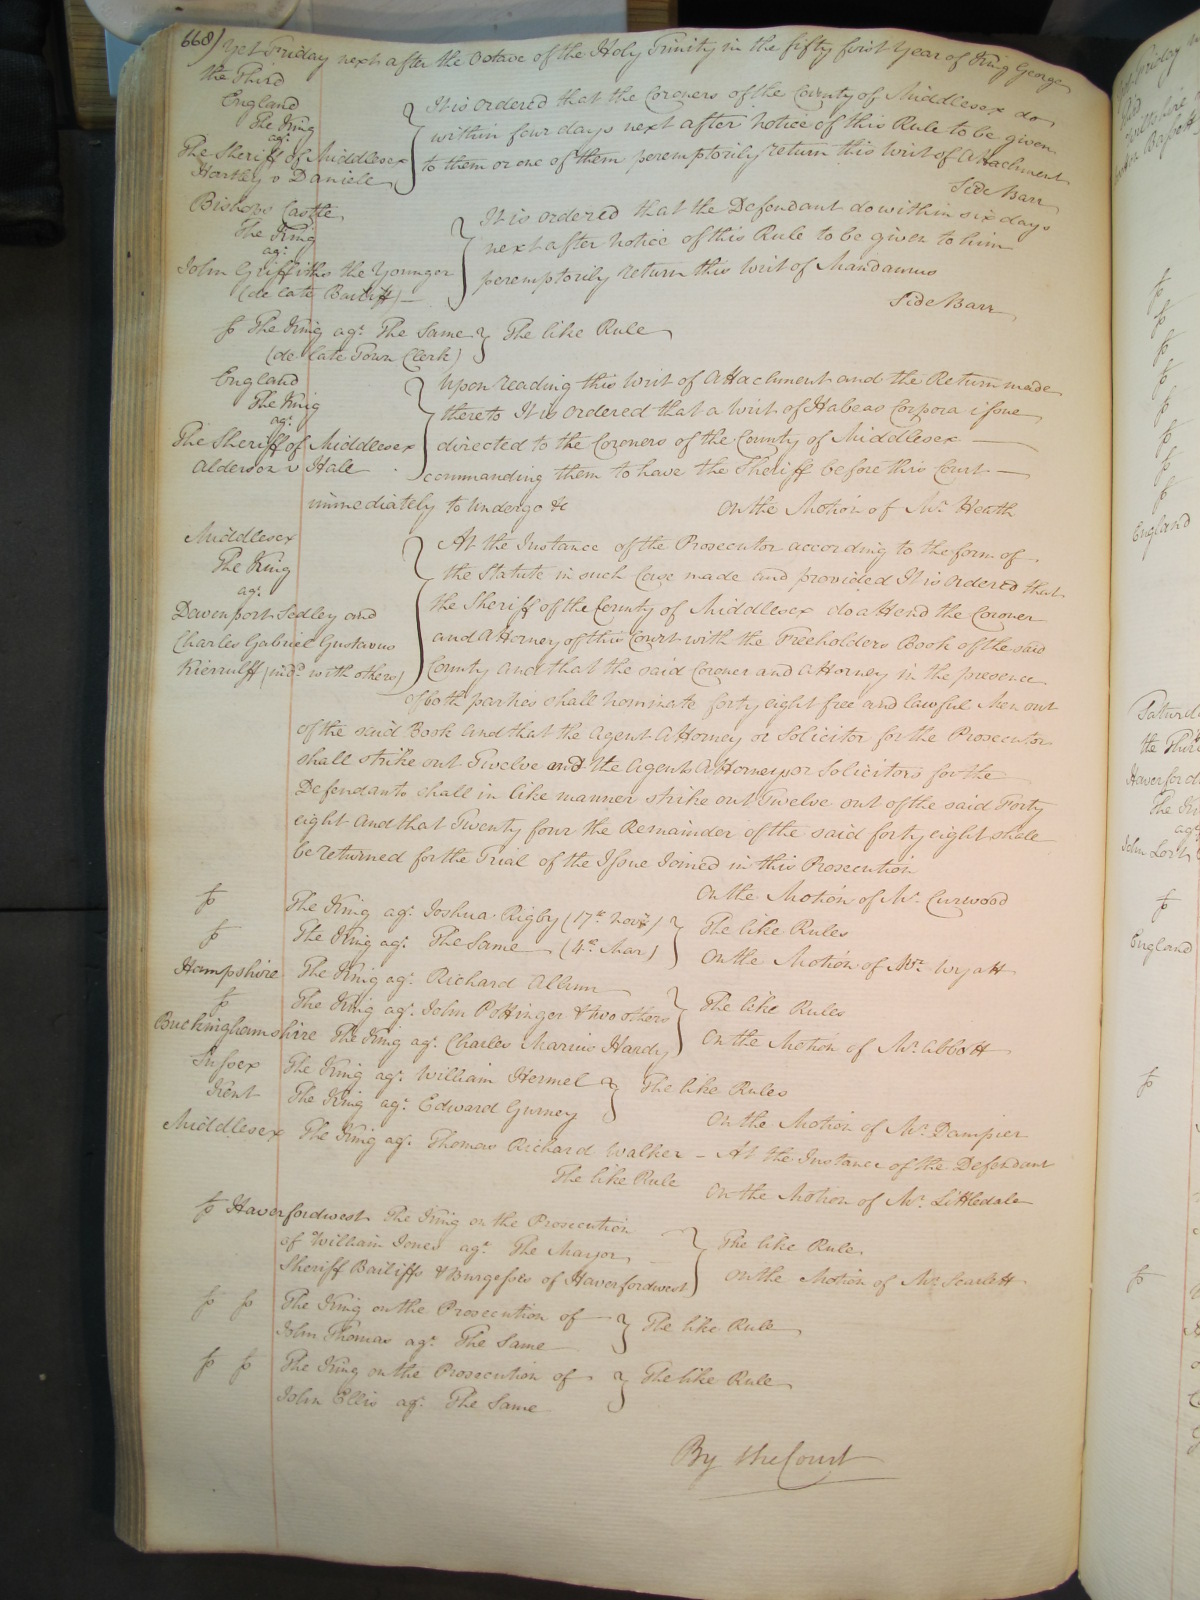 668) Yet Friday next after the Octave of the Holy Trinity in the fifty first Year of King George
the Third
England
The King
agt
The Sheriff of Middlesex
Hartley v Daniell
It is ordered that the Coroners of the County of Middlesex do
within four days next after Notice of this Rule to be given
to them or one of them peremptorily return this Writ of Attachment
Side Barr
Bishops Castle
The King
agt
John Griffiths the Younger
(de late Bailiff)
It is ordered that the Defendant do within six days
next after Notice of this Rule to be given to him
peremptorily return this Writ of Mandamus
Side Barr
The King agt The Same } The like Rule
(de late Town Clerk)
England
The King
agt
The Sheriff of Middlesex
Alderson v Hale
Upon reading this Writ of Attachment and the Return made
thereto It is ordered that a Writ of Habeas Corpora issue
directed to the Coroners of the County of Middlesex
commanding them to have the Sheriff before this Court
immediately to undergo &c On the Motion of Mr. Heath
Middlesex
The King
agt
Davenport Sedley and
Charles Gabriel Gustavus
Kierrulff (indd. with others)
At the Instance of the Prosecutor according to the form of
the Statute in such Case made and provided It is Ordered that
the Sheriff of the County of Middlesex do attend the Coroner
and Attorney of this Court with the Freeholders Book of the said
County and that the said Coroner and Attorney in the presence
of both parties shall nominate forty eight free and lawful Men out
of the said Book And that the Agent Attorney or Solicitor for the Prosecutor
shall strike out Twelve and the Agents Attorneys or Solicitors for the
Defendants shall in like manner strike out Twelve out of the said Forty
eight And that Twenty four the Remainder of the said forty eight shall
be returned for the Trial of the Issue Joined in this Prosecution
On the Motion of Mr. Curwood
The King agt Joshua Rigby (17th Novr.)
The King agt The Same (4th Mar)
The like Rules
On the Motion of Mr. Wyatt
Hampshire The King agt Richard Allum
The King agt John Pottinger & two others
Buckinghamshire The King agt Charles Marius Hardy
The like Rules
On the Motion of Mr. Abbott
Sussex The King agt William Hermel
Kent The King agt Edward Gurney
The like Rules
On the Motion of Mr. Dampier
Middlesex The King agt Thomas Richard Walker – At the Instance of the Defendant
The like Rule On the Motion of Mr. Littledale
Haverfordwest The King on the Prosecution
of William Jones agt The Mayor
Sheriff Bailiffs & Burgesses of Haverfordwest
The like Rule
On the Motion of Mr. Scarlett
The King on the Prosecution of
John Thomas agt The Same
The like Rule
The King on the Prosecution of
John Ellis agt The Same
The like Rule
By the Court
England
Saturd
the Thir
Haverford
The Ki
agt
England